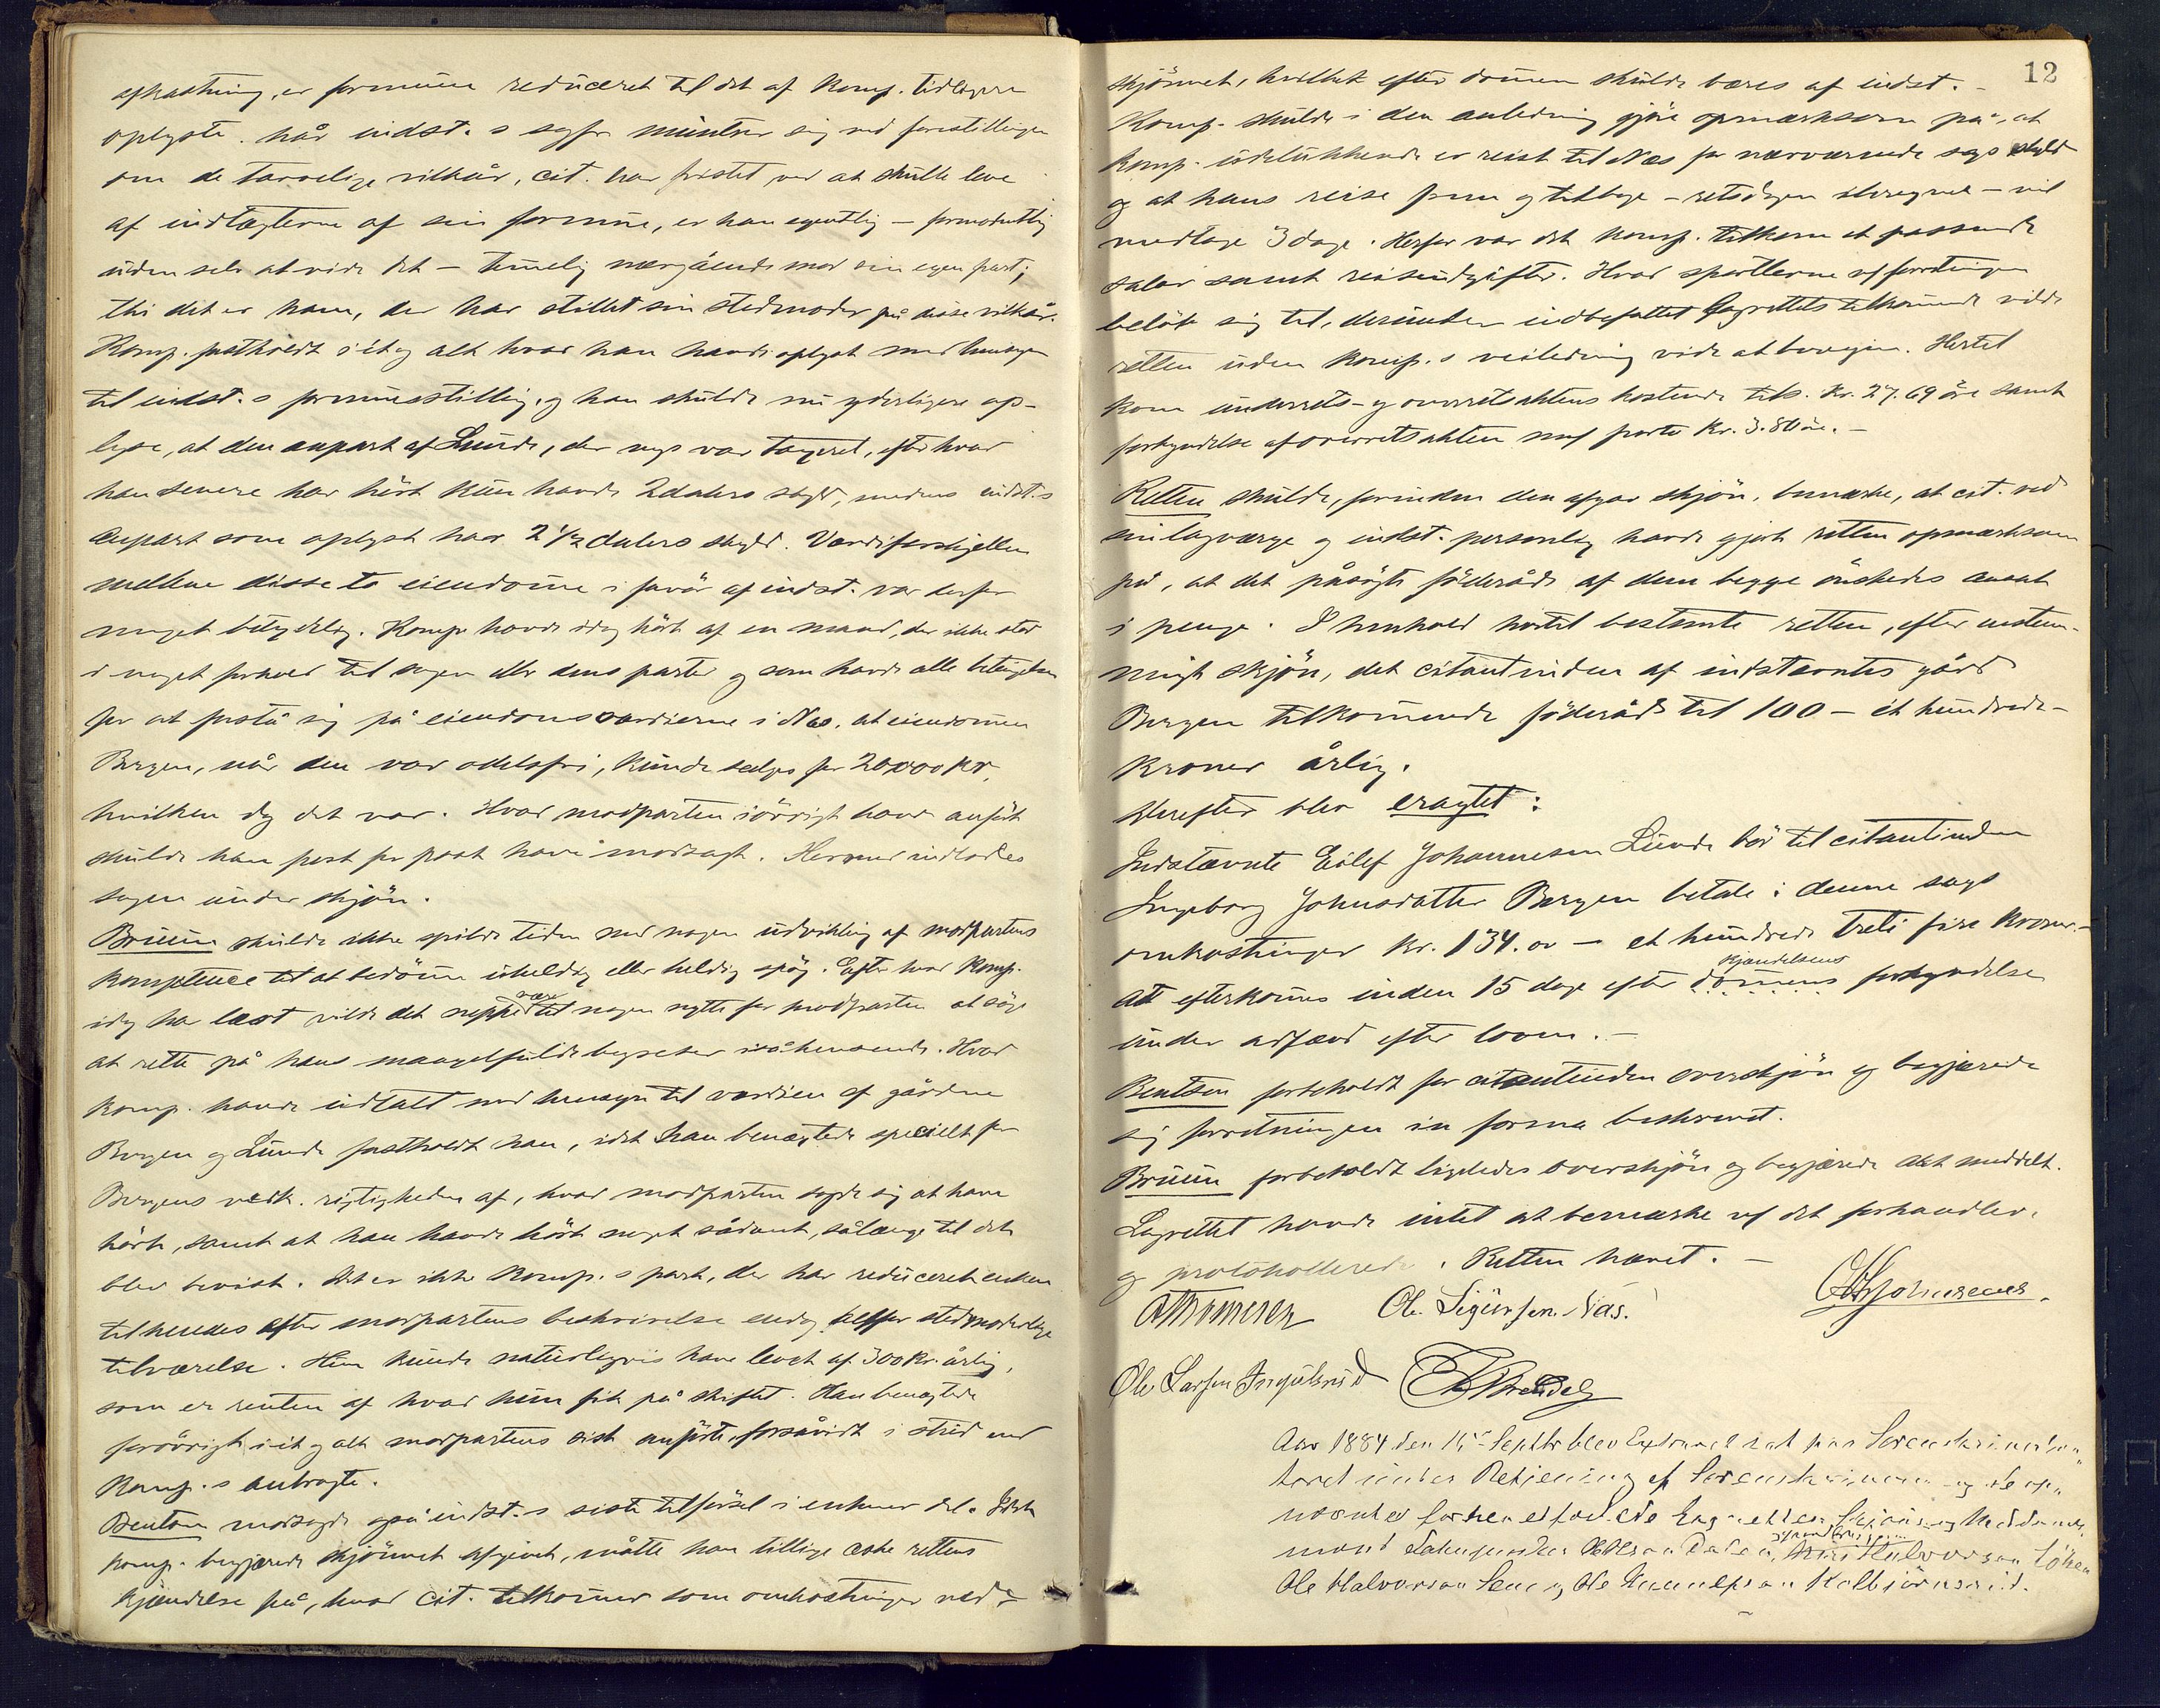 afkastning, er formuen reduceret til det af komp. tidligere
oplyste. Når indst.s sagfr. muntrer sig med forestillingen
om de tarvelige vilkår, cit. har fristet ved at skulle leve
af indtægterne af sin formue, er han egentlig – formodentlig
uden selv at vide det – temmelig nærgående mod sin egen part;
thi det er ham, der har stillet sin stedmoder på disse vilkår.
Komp. fastholdt i ét og alt hvad han havde oplyst med hensyn
til indst.s formuesstilling, og han skulde nu yderligere op-
lyse, at den anpart af Lunde, der nys var taxeret, efter hvad
han senere har hört kun havde 2 dalers skyld, medens indst.s
anpart som oplyst har 2 1/2 dalers skyld. Værdiforskjellen
mellem disse to eiendomme i favör af indst. var derfor
meget betydelig. Komp. havde idag hört af en mand, der ikke stod
i noget forhold til sagen eller dens parter og som havde alle betingelser
for at forstå sig på eiendomsværdierne i Næs, at eiendommen
Bergen, når den var odelsfri, kunde sælges for 20,000 kr.
hvilken dag det var. Hvad modparten iövrigt havde anfört
skulde han post for post have modsagt. Hermed indlodes
sagen under skjön.
Bruun skulde ikke spilde tiden med nogen udvikling af modpartens
kompetence til at bedömme uheldig eller heldig spög. Efter hvad komp.
idag har læst vilde det neppe være til nogen nytte for modparten at söge
at rette på hans mangelfulde begreber i så henseende. Hvad
komp. havde indtalt med hensyn til værdien af gårdene
Bergen og Lunde fastholdt han, idet han benægtede specielt for
Bergens vedk. rigtigheden af, hvad modparten sagde sig at have
hört, samt at han havde hört noget sådant, sålænge til det
blev bevist. Det er ikke komp.s part, der har reduceret enken
til hendes efter modpartens beskrivelse endog stedmoderlige
tilværelse. Hun kunde naturligvis have levet af 300 kr. årlig,
som er renten af hvad hun fik på skiftet. Han benægtede
forövrigt i ét og alt modpartens sidst anförte, forsåvidt i strid med
komp.s anbragte.
Bentsen modsagde også indst.s siste tilförsel i enhver del. Idet
komp. begjærede skjönnet afgivet, måtte han tillige æske rettens
kjændelse på, hvad cit. tilkommer som omkostninger ved
12
skjönnet, hvilket efter dommen skulde bæres af indst. –
Komp. skulde i den anledning gjöre opmærksom på, at
komp. udelukkende er reist til Næs for nærværende sags skyld
og at hans reise frem og tilbage – retsdagen iberegnet – vil
medtage 3 dage. Herfor var det komp. tilkom et passende
salær samt reiseudgifter. Hvad sportlerne af forretningen
belöb sig til, derunder indbefattet lagrettets tilkommende vilde
retten uden komp.s veiledning vide at beregne. Hertil
kom underrets- og overretsaktens kostende tils. Kr. 27.69 öre samt
forkyndelse af overretsakten med porto Kr. 3.80 öre. –
Retten skulde, forinden den afgav skjön, bemærke, at cit. ved
sin lagværge og indst. personlig havde gjort retten opmærksom
på, at det påsögte föderåd af dem begge önskedes ansat
i penge. I henhold hertil bestemte retten, efter enstem-
migt skjön, det citantinden af indstævntes gård
Bergen tilkommende föderåd til 100 – ét hundrede –
kroner årlig.
Derefter blev eragtet:
Indstævnte Eilef Johannesen Lunde bör til citantinden
Ingeborg Johnsdatter Bergen betale i denne sags
omkostninger kr. 134.00 – et hundrede treti fire kroner. –
At efterkommes inden 15 dage efter dommens kjændelsens forkyndelse
under adfærd efter loven. –
Bentsen forbeholdt for citantinden overskjön og begjærede
sig forretningen in forma beskrevet.
Bruun forbeholdt ligeledes overskjön og begjærede akt meddelt.
Lagrettet havde intet at bemærke ved det forhandlede
og protokollerede. Retten hævet. –
Ole Sigurdsen Næs.
Ole Larsen Ingulsrud
Aar 1884 den 15de Septbr blev Extraret sat paa Sorenskriverkon-
toret under Betjening af Sorenskriveren og de op-
nævnte Lagrettes Skjöns og Meddoms-
mænd Halvorsen Löken
Ole Halvorsen og Ole Gunnulfsen Kolbjörnsrud.